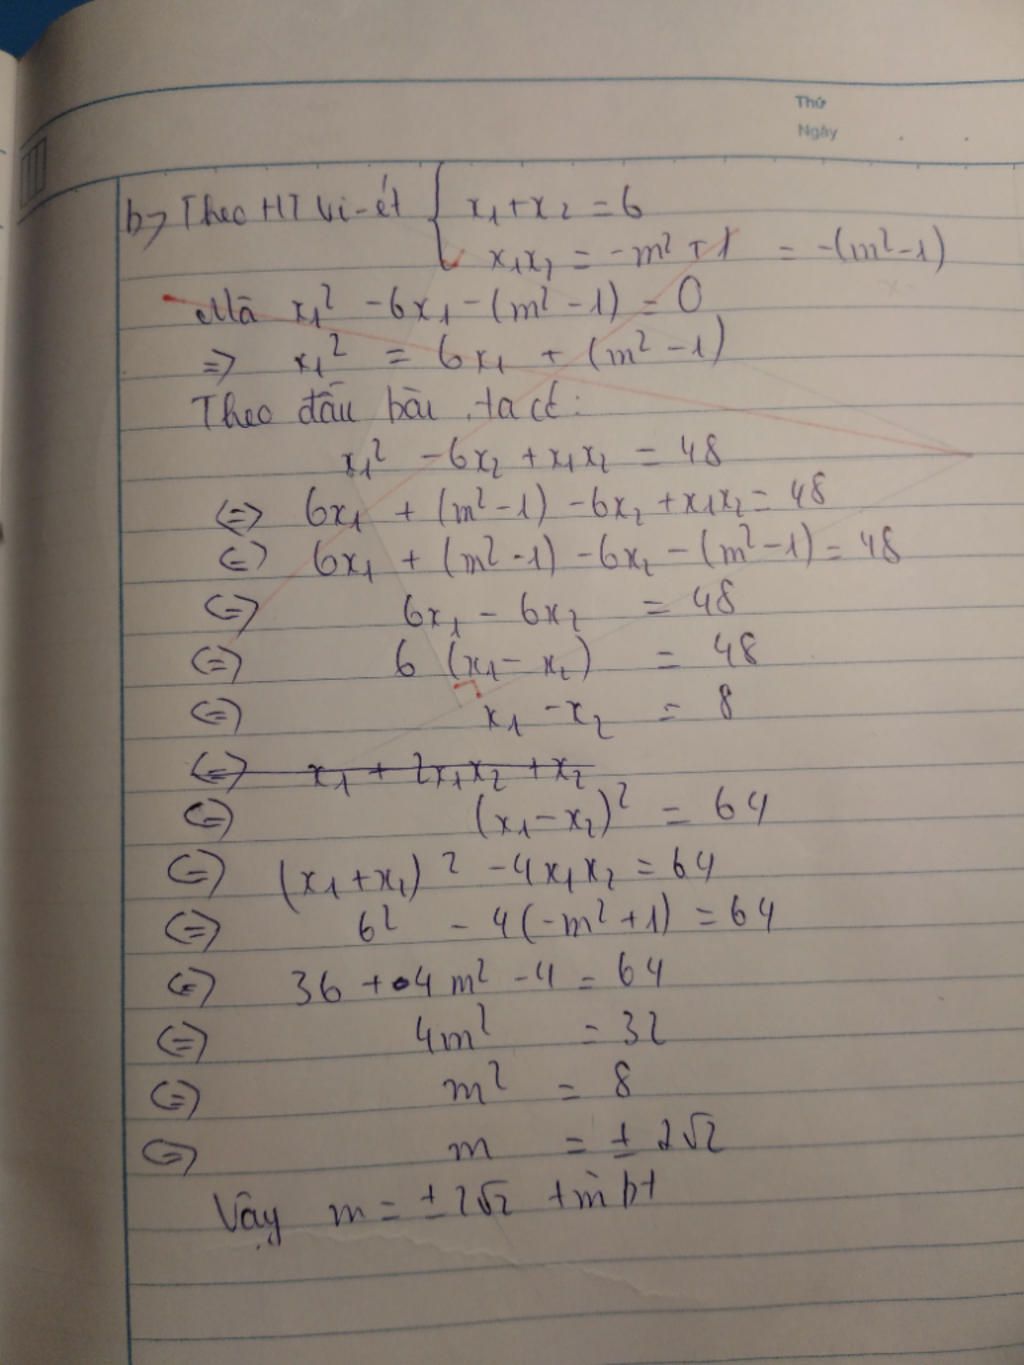 Thứ
Ngày
b, Theo HT Vi-ét { x₁ + x₂ = 6
x₁x₂ = -m² + 1 = -(m² - 1)
Mà x₁² - 6x₁ - (m² - 1) = 0
=> x₁² = 6x₁ + (m² - 1)
Theo đầu bài, ta có:
x₁² - 6x₂ + x₁x₂ = 48
<=> 6x₁ + (m² - 1) - 6x₂ + x₁x₂ = 48
<=> 6x₁ + (m² - 1) - 6x₂ - (m² - 1) = 48
<=> 6x₁ - 6x₂ = 48
<=> 6 (x₁ - x₂) = 48
<=> x₁ - x₂ = 8
<=> x₁ + 2x₁x₂ + x₂
<=> (x₁ - x₂)² = 64
<=> (x₁ + x₂)² - 4x₁x₂ = 64
<=> 6² - 4(-m² + 1) = 64
<=> 36 + 4m² - 4 = 64
<=> 4m² = 32
<=> m² = 8
<=> m = ± 2√2
Vậy m = ± 2√2 tm bt